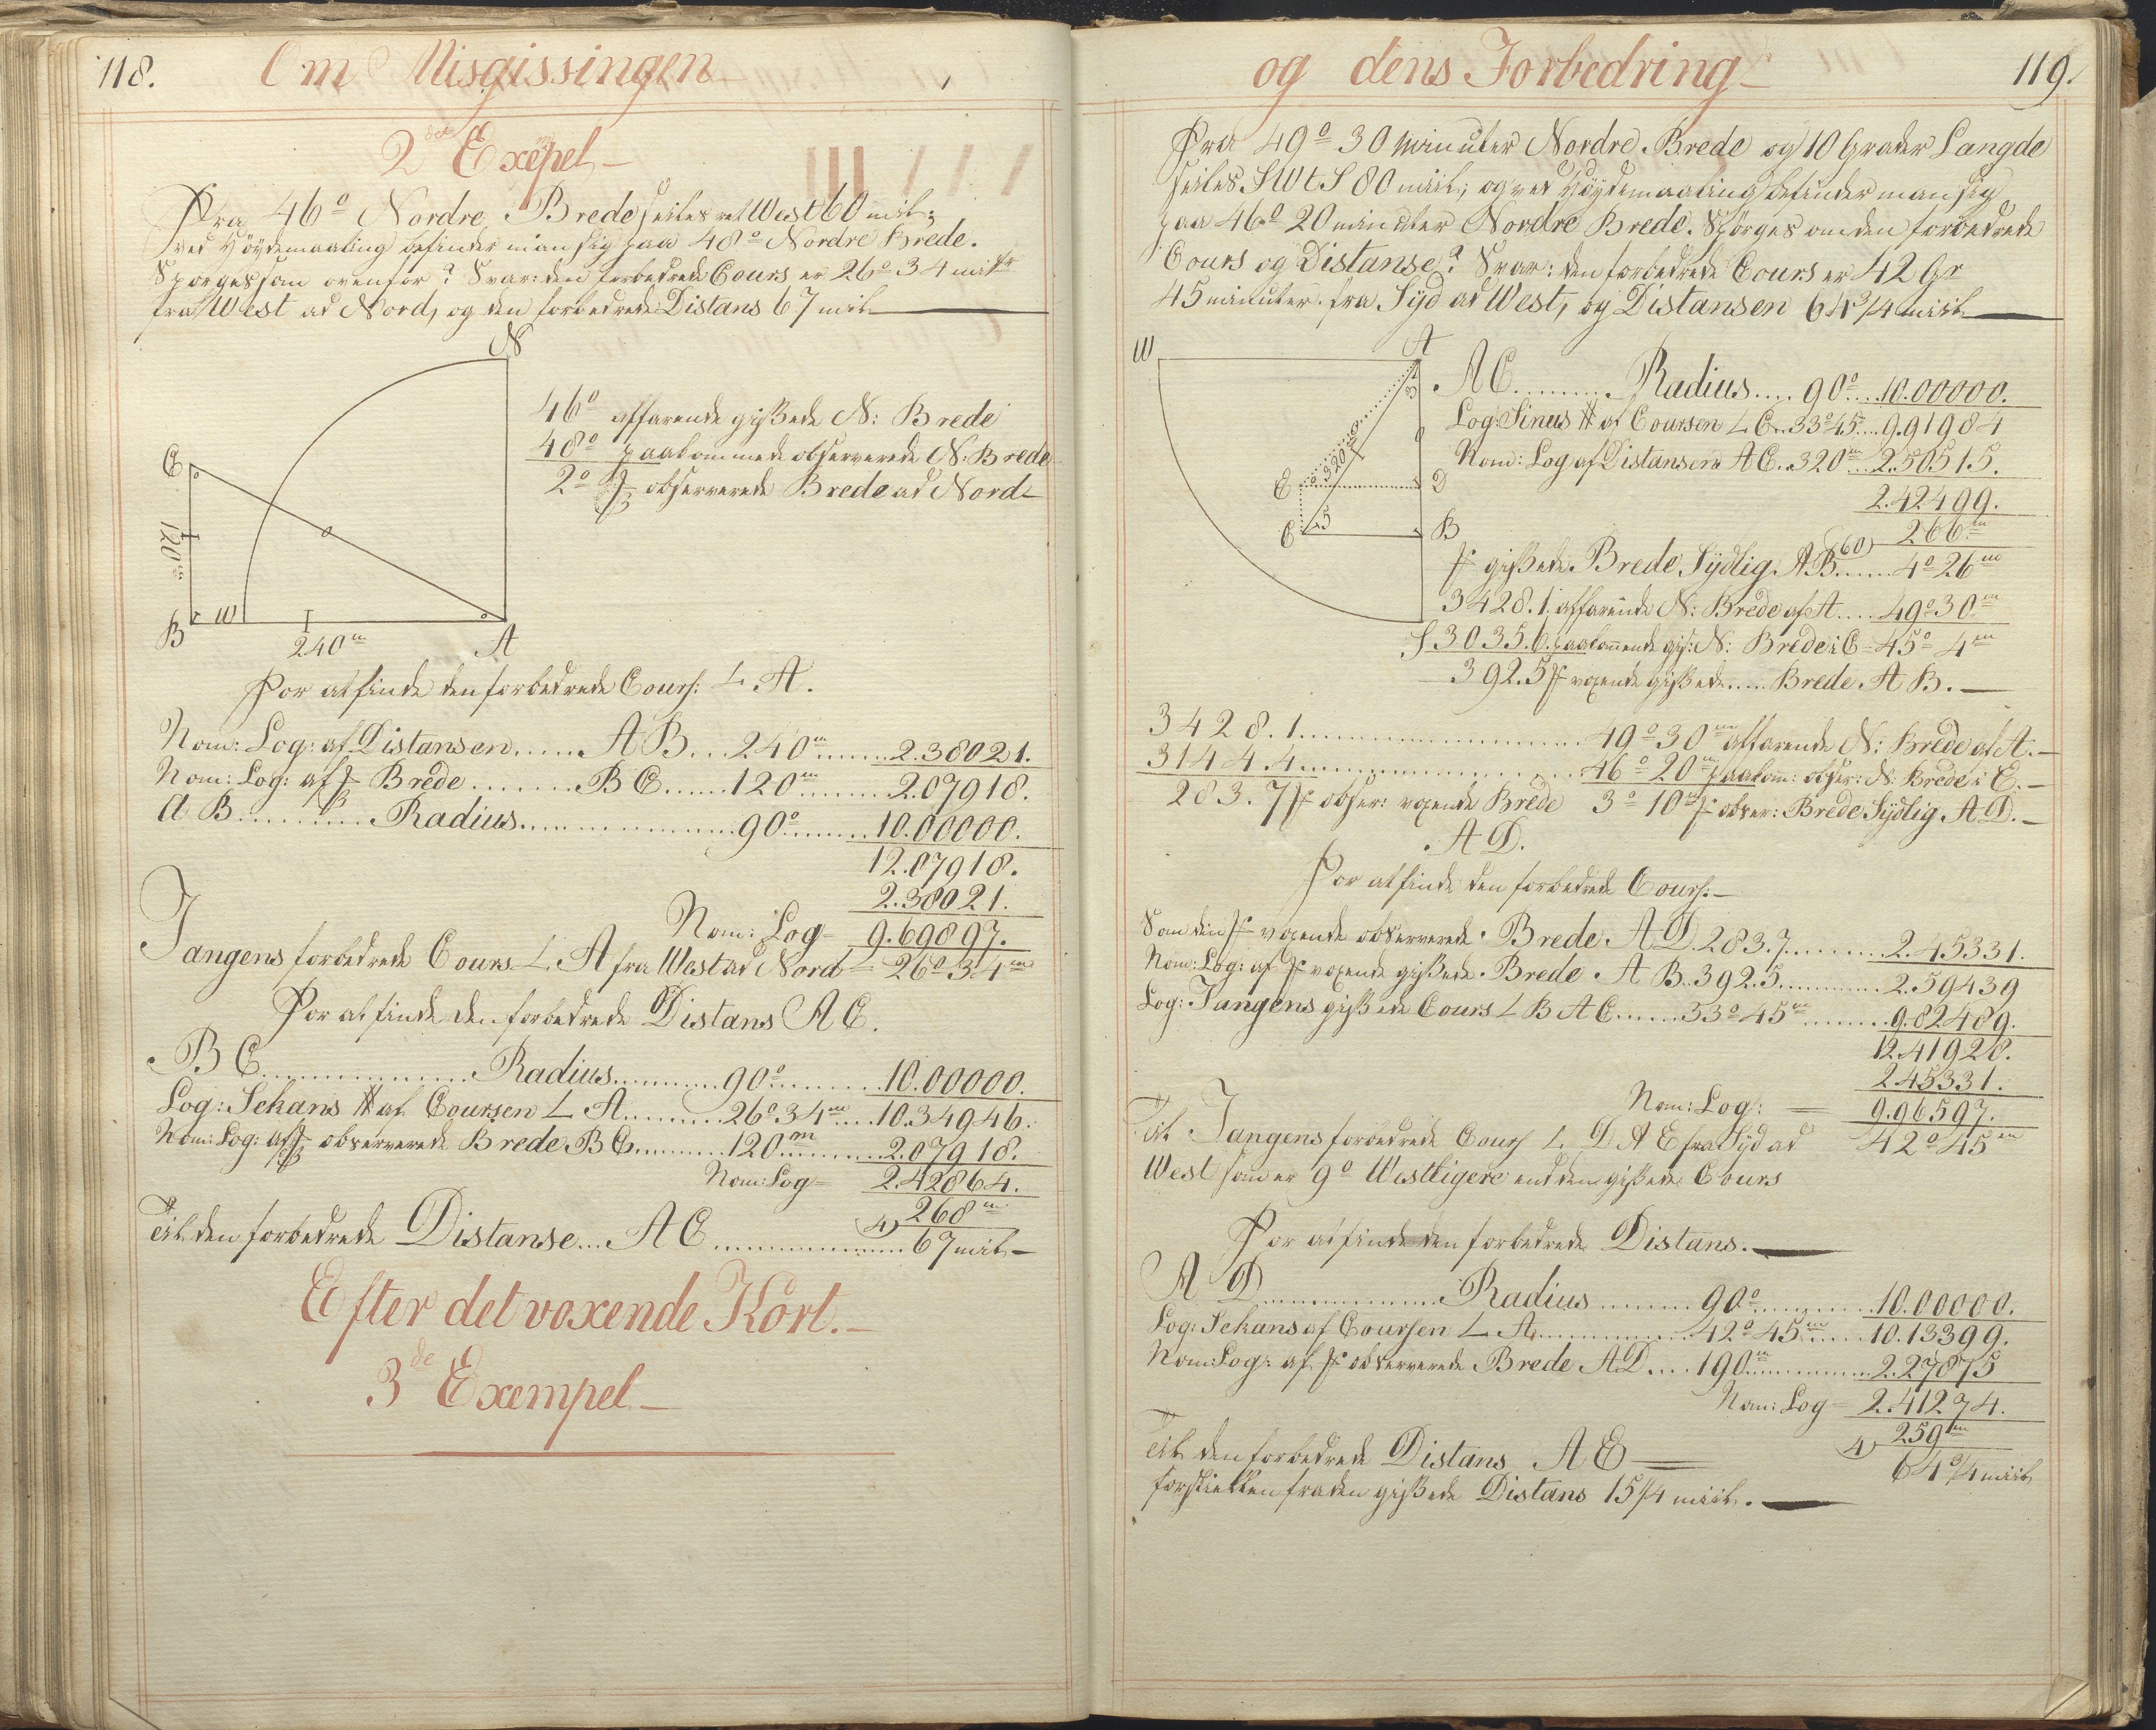 118.
Om Misgissingen
2det Exepel
Fra 46° Nordre Brede seiles ret West 60 mil;
ved Höydemaaling befinder man sig paa 48° Nordre Brede.
Spörges som ovenfor? Svar: den forbedrede Cours er 26° 34 mitr
fra West ad Nord, og den forbedrede Distans 67 mil
N
C
120m
B
W
240m
A
46° affarende gißede N: Brede
48° paakommede observerede N: Brede
2° observerede Brede ad Nord
For at finde den forbedrede Cours: L A.
Nom: Log: af Distansen...... A B... 240m......2.38021.
Nom: Log: af Brede........B C......120m........2.07918.
A B............Radius..................90°........10.00000.
12.07918.
2.38021.
Nom: Log 9.69897.
Tangens forbedrede Cours L A fra West ad Nord = 26° 34m
For at finde den forbedrede Distans A C.
B C.................Radius..........90°.........10.00000.
Log: Sekans af Coursen L A........26° 34m....10.34946.
Nom: Log: af observerede Brede B C.........120m.........2.07918.
Nom: Log= 2.42864.
268m
Til den forbedrede Distanse... A C................4) 67 mil
Efter det voxende Kort.
3de Exempel
og dens Forbedring
119.
Fra 49° 30 minuter Nordre Brede og 10 Grader Langde
seiles SWtS 80 miil; og ved Höydemaaling befinder man sig
paa 46° 20 minuter Nordre Brede. Spörges om den forbedrede
Cours og Distanse? Svar: den forbedrede Cours er 42 Gr
45 minuter. fra Syd ad West, og Distansen 64 3/4 miil
W
A
E
320m
D
C
B
S
A C......... Radius.... 90°...10.00000.
Log: Sinus af Coursen L C..33° 45....9.91984
Nom: Log af Distansen A C..320m...2.50515.
2.42499.
60) 266m
gißede Brede Sydlig A B.....4° 26m
3428.1. affarende N: Brede af A....49° 30m
3035.6. paakommende gis: N: Brede i C = 45° 4m
392.5 voxende gißede..... Brede A B.
3428.1..................49° 30m affarende N: Brede af A.
3144.4..................46° 20m paakom: obser: N: Brede i E.
283.7 obser: voxende Brede 3° 10m obser: Brede Sydlig A D.
A D.
For at finde den forbedrede Cours:
Som den voxende observerede Brede A D 283.7.........2.45331.
Nom: Log: af voxende gißede Brede A B..392.5...........2.59439
Log: Tangens gißede Cours L B A C......33° 45m........9.82489.
12.41928.
2.45331.
Nom: Log: = 9.96597.
Til Tangens forbedrede Cours L D A E fra Syd ad 42° 45m
West som er 9° Westligere end den gißede Cours
For at finde den forbedrede Distans.
A D................Radius.........90°...........10.00000.
Log: Sekans af Coursen L A...............42° 45m.....10.13399.
Nom: Log: af observerede Brede A D....190m..........2.27875
Nom: Log= 2.41274.
4) 259m
Til den forbedrede Distans A E 64 3/4 miil
forskiellen fra den gißede Distans 15 1/4 miil.